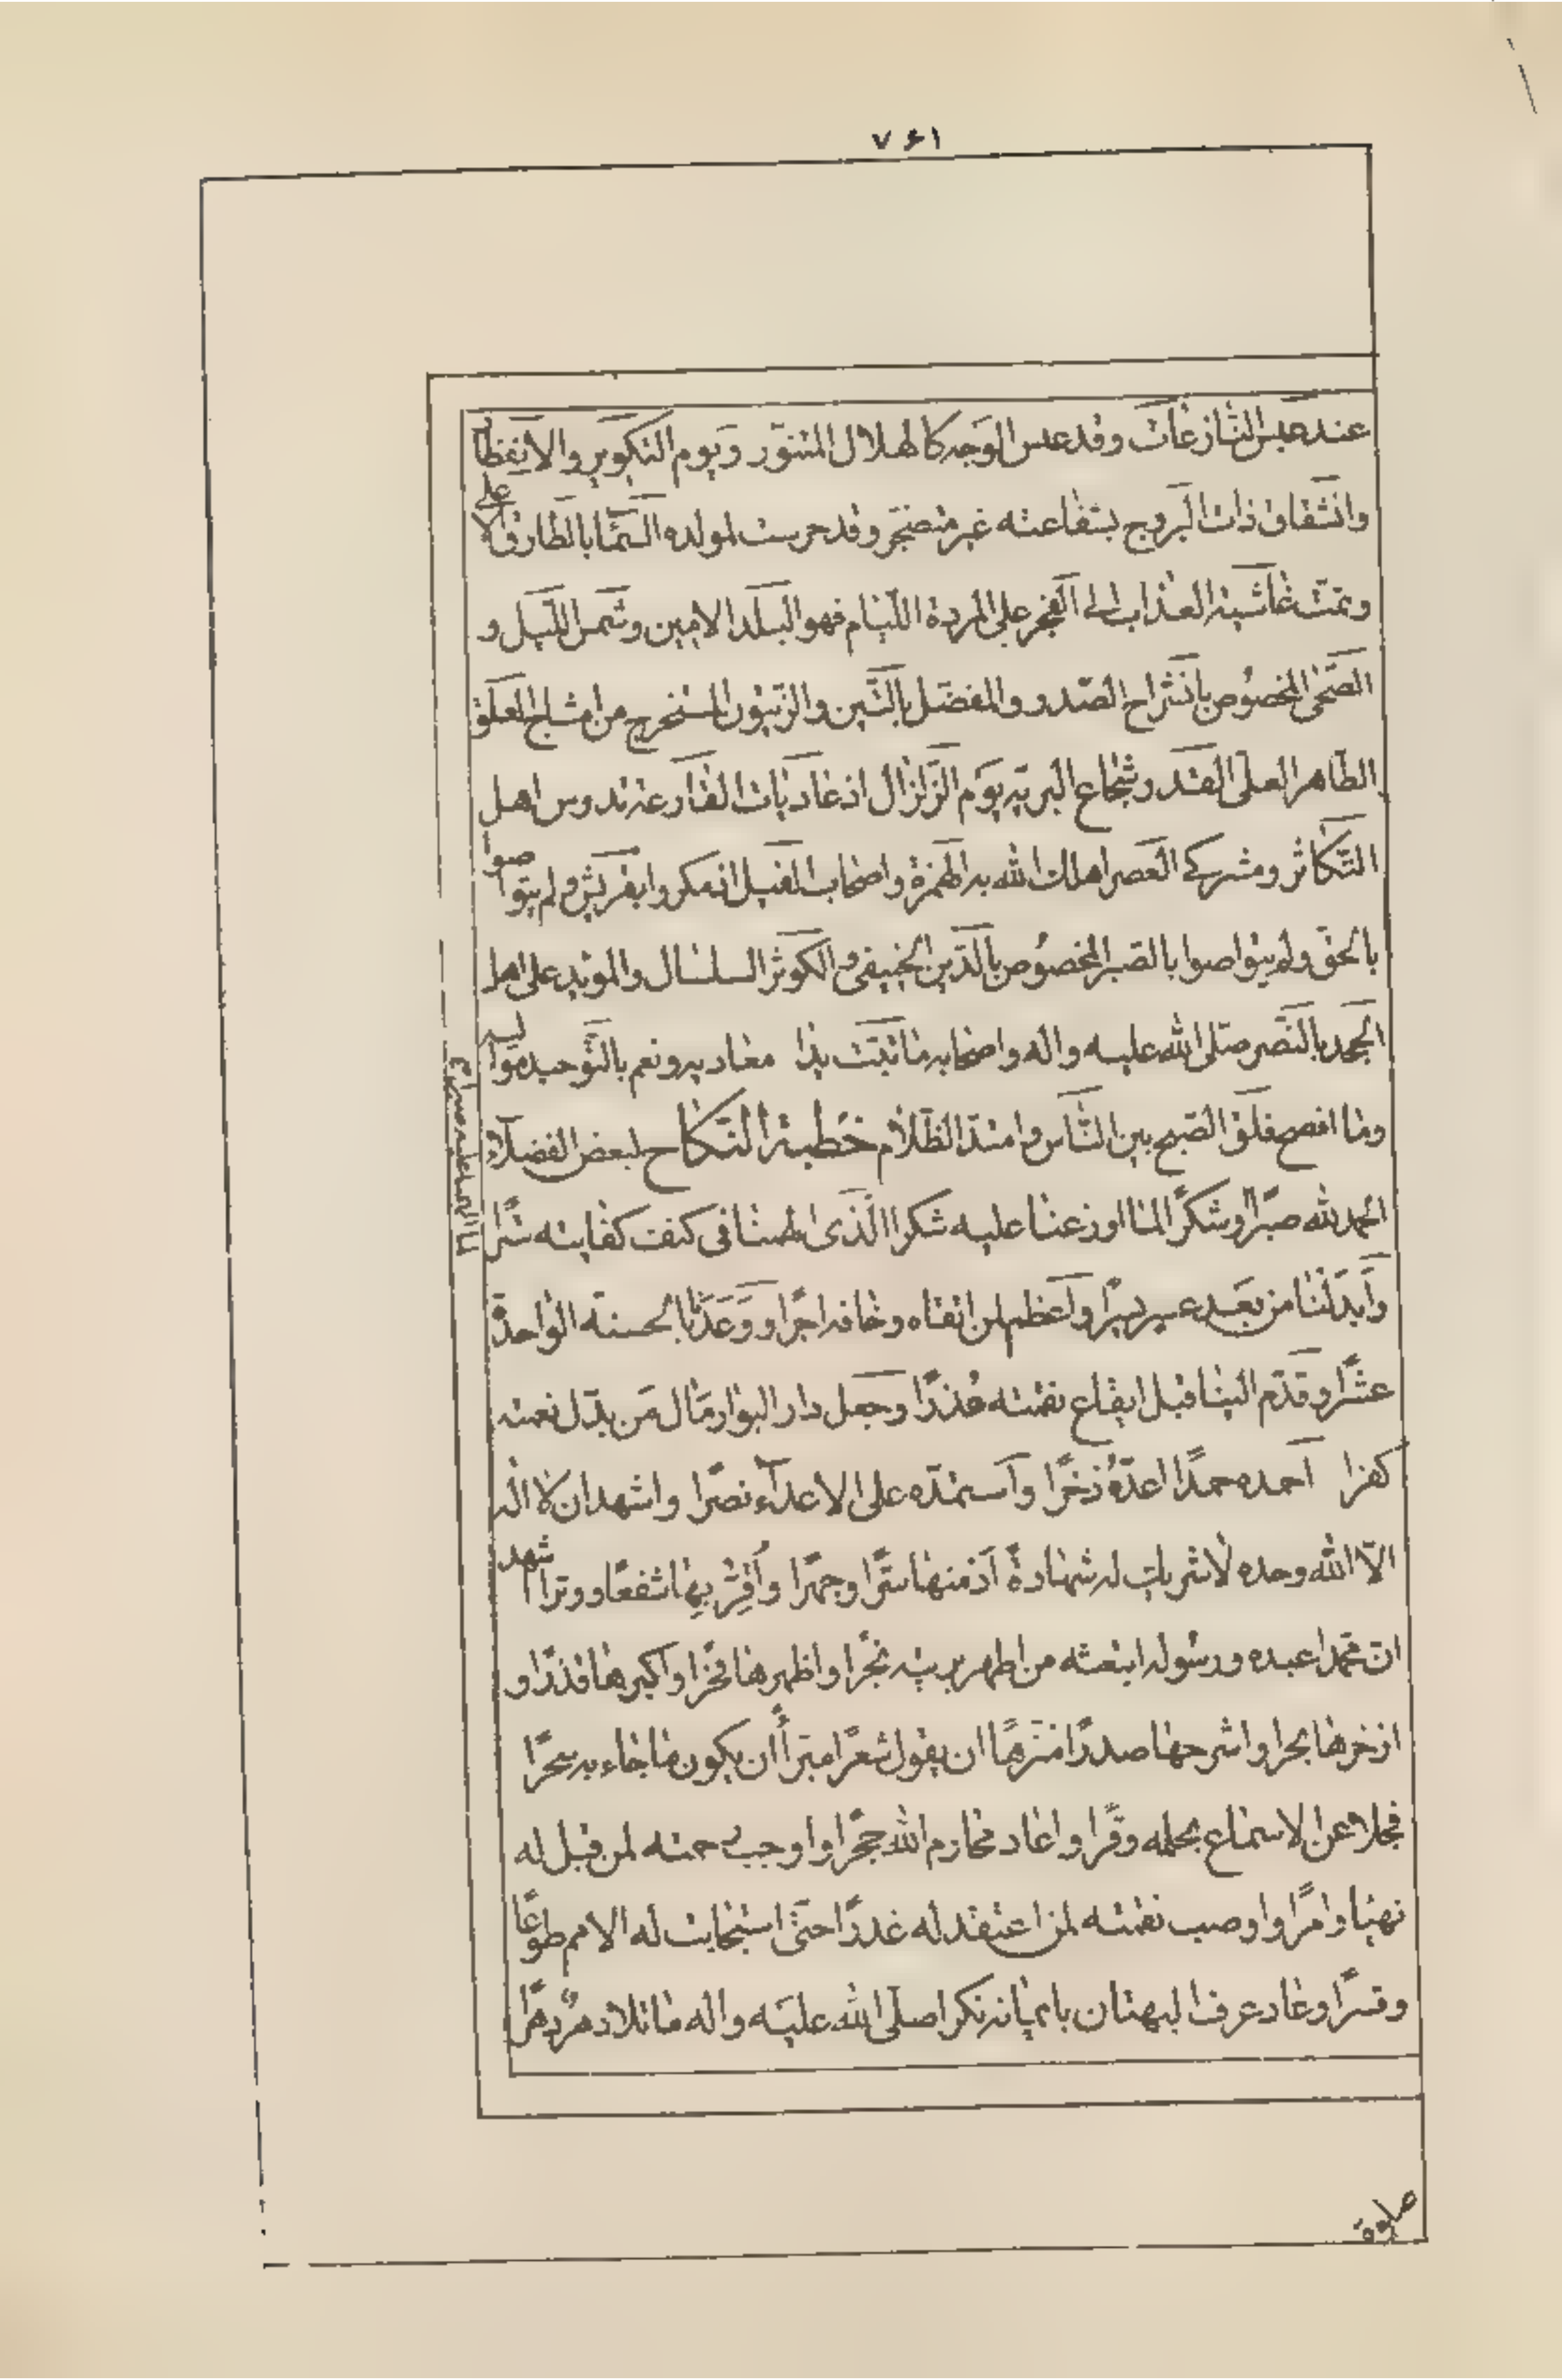 ٧٦١
عند عبس النازعات وقد عبس الوجه كالهلال المتنوّر ويوم التكوير والانفطار
وانشقاق ذات البروج بشفاعته غير متضجر وقد حرست لمولده السماء بالطارق الاعلى
وتمت غاشية العذاب الى الفجر على المردة اللئام فهو البلد الامين وشمس الليل و
الضحى المخصوص بانشراح الصدور والمفضل بالتين والزيتون المستخرج من امشاج العلق
الطاهر العلى القدر وشجاع البرية يوم الزلزال اذ عاديات القارعة تدوس اهل
التكاثر ومشركي العصر اهلك الله به الهمزة واصحاب الفيل اذ مكروا بقريش ولم يتواصوا
بالحق ولم يتواصوا بالصبر المخصوص بالدين الحنيفي والكوثر السلسال والمؤيد على اهل
الجحد بالنصر صلى الله عليه واله واصحابه ما تبت يدا معاديه ونعم بالتوحيد مواليه
وما افصح فلق الصبح بين الناس وامتد الظلام خطبة النكاح لبعض الفضلاء
الحمد لله صبرا وشكرا لما اوزعنا عليه شكرا الذى البسنا فى كنف كفايته سترا
وابدلنا من بعد عسر يسرا واعظم لمن اتقاه وخافه اجرا ووعدنا بالحسنة الواحدة
عشرا وقدّم الينا قبل ايقاع نقمته عذرا وجعل دار البوار مال من بدّل نعمته
كفرا احمده حمدا اعدّه ذخرا واستمدّه على الاعداء نصرا واشهد ان لا اله
الّا الله وحده لا شريك له شهادة اذ منها سرّا وجهرا وأفِرْ بها شفعا ووترا اشهد
ان محمدا عبده ورسوله ابتعثه من اطهر بريته نجرا واظهرها فخرا واكبرها قدرا و
ازخرها بحرا واشرحها صدرا منزها ان يقول شعرا مبرأ ان يكون ما جاء به سحرا
فجلا عن الاسماع بحلمه وقرا واعاد محارم الله حجرا واوجب رحمته لمن قبل له
نهيا وامرا واوصب نقمته لمن اعتقد له غدرا حتى استجابت له الامم طوعا
وقسرا وعاد عرف البهتان بايمانه نكرا صلى الله عليه واله ما تلا دهر دهرا
صلوة